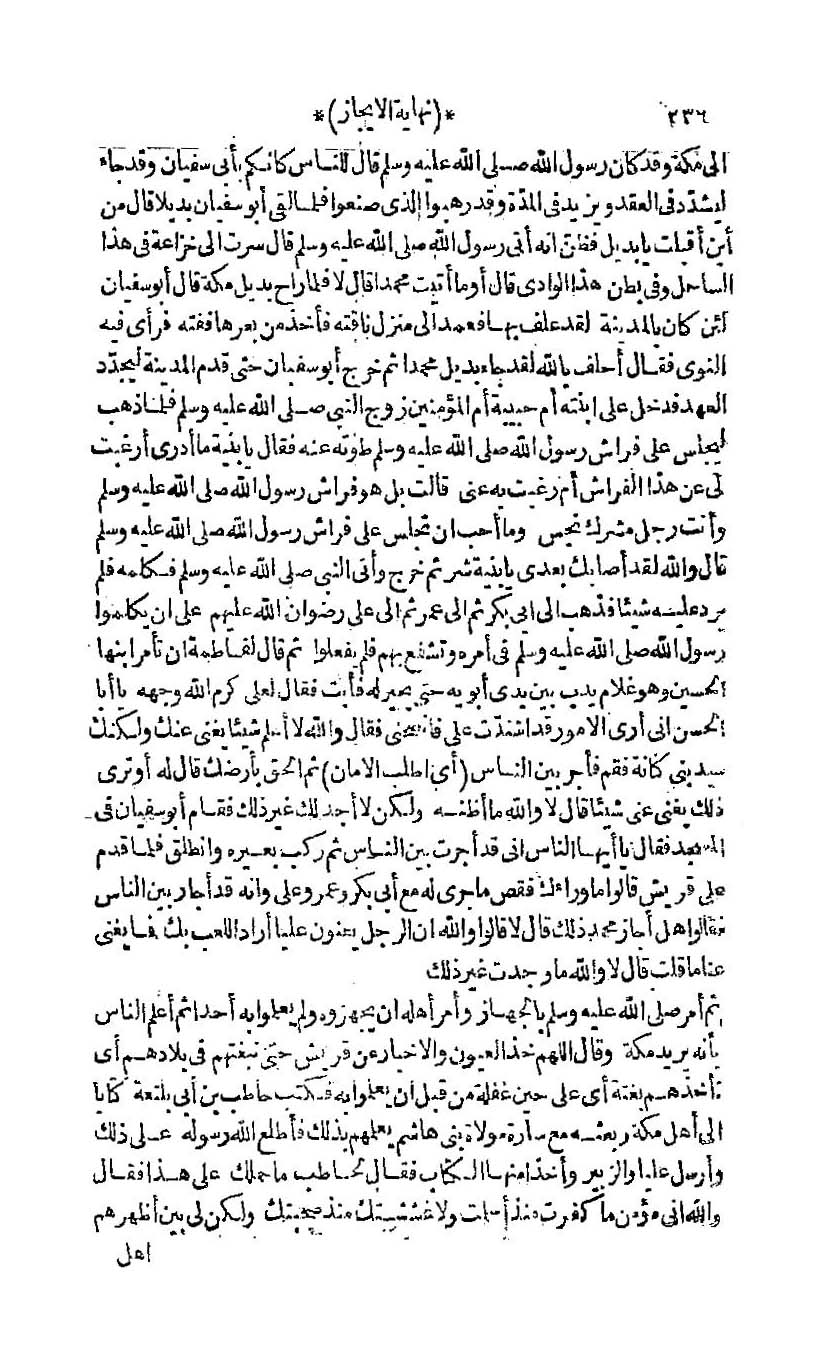 ٢٣٦ *(نهاية الايجاز)*
الى مكة وقد كان رسول الله صلى الله عليه وسلم قال للناس كانكم بأبى سفيان وقد جاء
ليشدد فى العقد ويزيد فى المدة وقد رهبوا الذى صنعوا فلما لقى أبو سفيان بديلا قال من
أين أقبلت يا بديل فظن انه أتى رسول الله صلى الله عليه وسلم قال سرت الى خزاعة فى هذا
الساحل وفى بطن هذا الوادى قال أوما أتيت محمدا قال لا فلما راح بديل مكة قال أبو سفيان
لئن كان بالمدينة لقد علف بها فعمد الى منزل ناقته فأخذ من بعرها ففته فرأى فيه
النوى فقال أحلف بالله لقد جاء بديل محمدا ثم خرج أبو سفيان حتى قدم المدينة ليجدد
العهد فدخل على ابنته أم حبيبة أم المؤمنين زوج النبى صلى الله عليه وسلم فلما ذهب
ليجلس على فراش رسول الله صلى الله عليه وسلم طوته عنه فقال يا بنية ما أدرى أرغبت
لى عن هذا الفراش أم رغبت به عنى قالت بل هو فراش رسول الله صلى الله عليه وسلم
وأنت رجل مشرك نجس وما أحب ان تجلس على فراش رسول الله صلى الله عليه وسلم
قال والله لقد أصابك بعدى يا بنية شر ثم خرج وأتى النبى صلى الله عليه وسلم فكلمه فلم
يرد عليه شيئا فذهب الى ابى بكر ثم الى عمر ثم الى على رضوان الله عليهم على ان يكلموا
رسول الله صلى الله عليه وسلم فى أمره وتشفع بهم فلم يفعلوا ثم قال لفاطمة ان تأمر ابنها
الحسين وهو غلام يدب بين يدى أبويه حتى يجير له فأبت فقال لعلى كرم الله وجهه يا أبا
الحسن انى أرى الامور قد اشتدت على فانصحنى فقال والله لا أعلم شيئا يغنى عنك ولكنك
سيد بنى كنانة فقم فأجر بين الناس (أى اطلب الامان) ثم الحق بأرضك قال له أوترى
ذلك يغنى عنى شيئا قال لا والله ما أظنه ولكن لا أجد لك غير ذلك فقام أبو سفيان فى
المسجد فقال يا أيها الناس انى قد أجرت بين الناس ثم ركب بعيره وانطلق فلما قدم
على قريش قالوا ما وراءك فقص ما جرى له مع أبى بكر وعمر وعلى وانه قد أجار بين الناس
فقالوا هل أجاز محمد ذلك قال لا قالوا والله ان الرجل يعنون عليا أراد اللعب بك فما يغنى
عنا ما قلت قال لا والله ما وجدت غير ذلك
ثم أمر صلى الله عليه وسلم بالجهاز وأمر أهله ان يجهزوه ولم يعلموا به أحدا ثم أعلم الناس
بأنه يريد مكة وقال اللهم خذ العيون والاخبار عن قريش حتى نبغتهم فى بلادهم أى
تأخذهم بغتة أى على حين غفلة من قبل ان يعلموا به فكتب حاطب بن أبى بلتعة كتابا
الى أهل مكة وبعثه مع سارة مولاة بنى هاشم يعلمهم بذلك فأطلع الله رسوله على ذلك
وأرسل عليا والزبير وأخذا منها الكتاب فقال لحاطب ما حملك على هذا فقال
والله انى مؤمن ما كفرت منذ أسلمت ولا غششتك منذ صحبتك ولكن لى بين أظهرهم
أهل